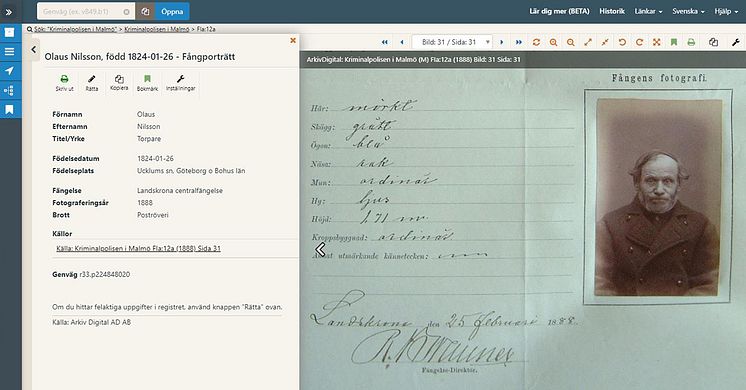 Genväg (ex. v849.b1)
Öppna
Lär dig mer (BETA)
Historik
Länkar
Svenska
Hjälp
Sök: "Kriminalpolisen i Malmö" > Kriminalpolisen i Malmö > FIa:12a
Bild: 31 / Sida: 31
Olaus Nilsson, född 1824-01-26 - Fångporträtt
Skriv ut
Rätta
Kopiera
Bokmärk
Inställningar
Förnamn Olaus
Efternamn Nilsson
Titel/Yrke Torpare
Födelsedatum 1824-01-26
Födelseplats Ucklums sn, Göteborg o Bohus län
Fängelse Landskrona centralfängelse
Fotograferingsår 1888
Brott Poströveri
Källor
Källa: Kriminalpolisen i Malmö FIa:12a (1888) Sida 31
Genväg r33.p224848020
Om du hittar felaktiga uppgifter i registret, använd knappen "Rätta" ovan.
Källa: Arkiv Digital AD AB
ArkivDigital: Kriminalpolisen i Malmö (M) FIa:12a (1888) Bild: 31 Sida: 31
Fångens fotografi.
Hår: mörkt
Skägg: grått
Ögon: blå
Näsa: rak
Mun: ordinär
Hy: ljus
Höjd: 1,71 m.
Kroppsbyggnad: ordinär
Annat utmärkande kännetecken:
Landskrona den 25 Februari 1888.
Fängelse-Direktör.